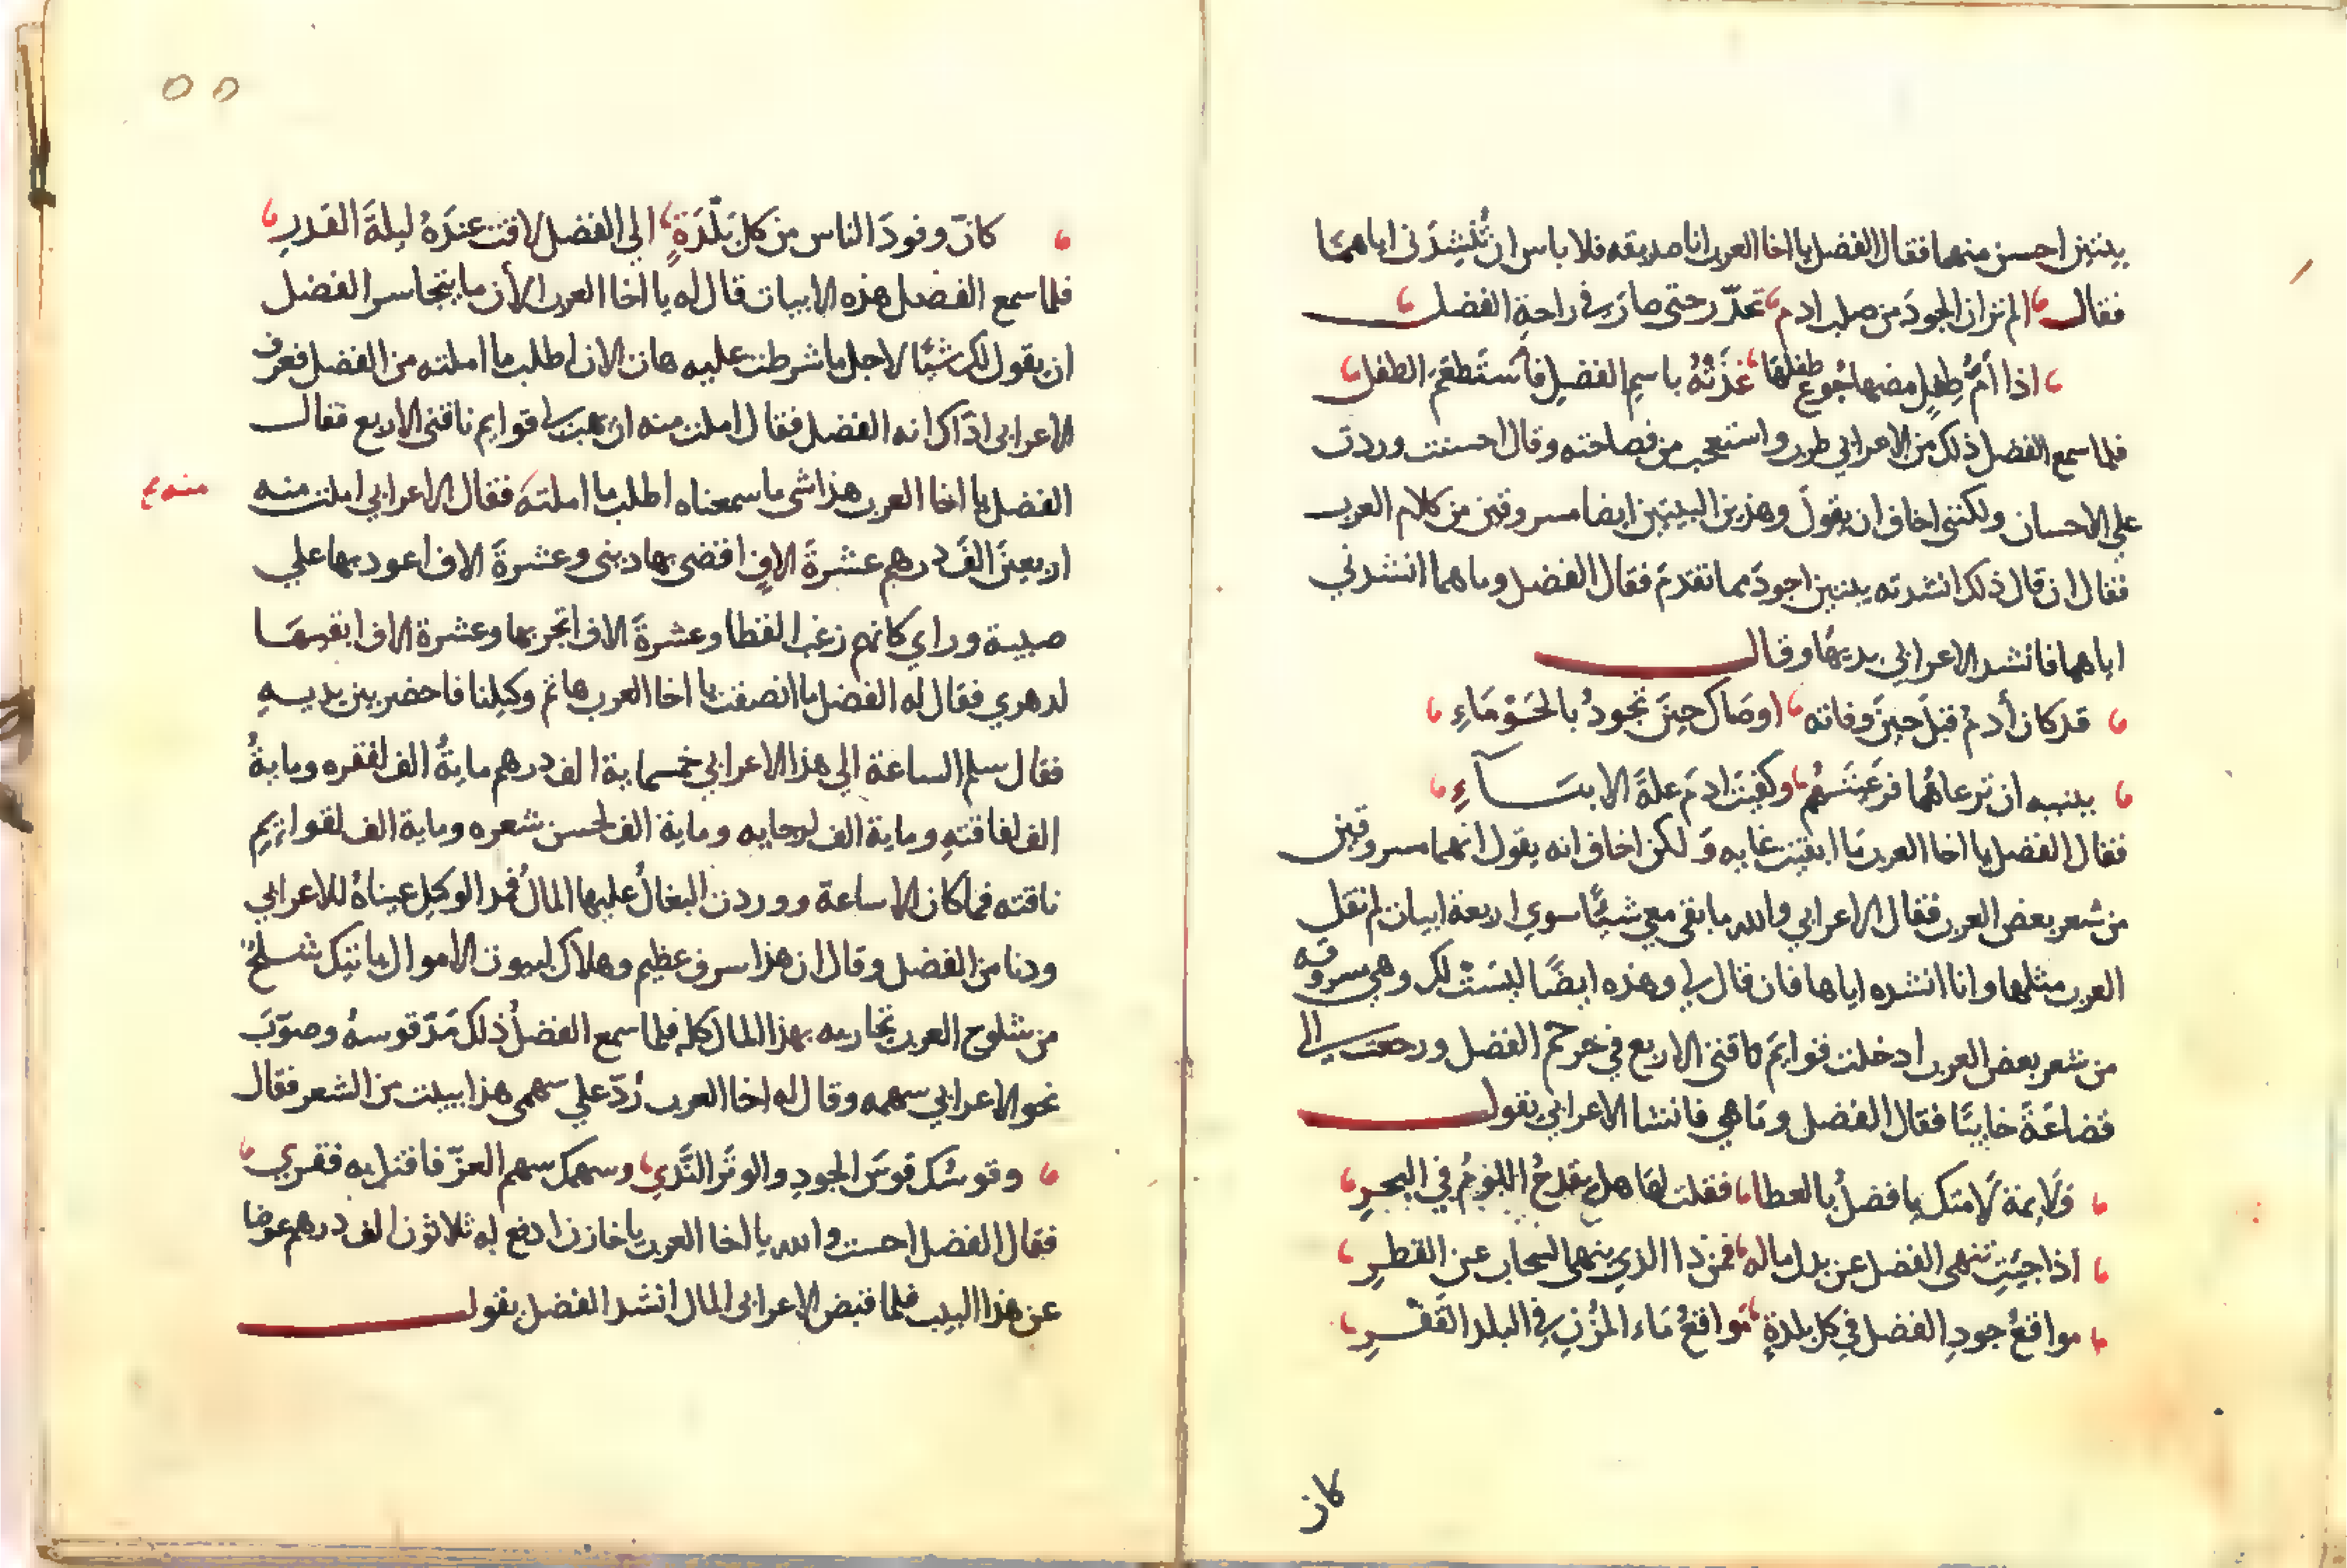 بيتين احسن منهما فقال الفضل يا اخا العرب انا صديقه فلا باس ان تُنشِدَنى اياهمَا
فقال الم تر ان الجودَ من صلب ادم تحدّر حتى صارَ فى راحةِ الفضل
اذا اُمُّ طِفلٍ مضها جُوع طفلهَا غَذَتْهُ باسمِ الفضلِ فاستَطعَمَ الطفل
فلما سمع الفضل ذلك من الاعرابي طرب واستعجب من فصاحته وقال احسنت وردت
علي الاحسان ولكننى اخاف ان يقولَ وهذين البيتين ايضا مسروقين من كلام العرب
فقال ان قال ذلك انشدته بيتين اجودَ مما تقدمَ فقال الفضل وما هما انشدني
اياهما فانشد الاعرابي بديهًا وقال
قد كان أدمُ قبلَ حينَ وفاته اوصَاكَ حينَ تجودُ بالحَوْمَاءِ
ببنيه ان ترعاهُما فرَعَيْتَهُم وكفيتَ ادمَ علةَ الابنَآءِ
فقال الفضل يا اخا العرب مَا ابقيت غايه وَلكن اخاف انه يقول انهما مسروقين
من شعر بعض العرب فقال الاعرابي والله ما بقى معي شيئًا سوي اربعة ابيات لم تقل
العرب مثلها وانا انشده اياها فان قال لى وهذه ايضًا ليسَتْ لك وهي مسروقه
من شعر بعض العرب ادخلت قوايمَ ناقتى الاربع في حرحمّ الفضل ورجعت الى
قضاعَةَ خايبًا فقال الفضل ومَا هي فانشا الاعرابي يقول
وَلَايمَة لَامَتك يا فضلُ بالعطا فقلت لهَا هل يقدحُ اللؤمُ في البحرِ
اذا جيَت تنهى الفضل عن بدل ماله فمن دا الذي ينهى السحاب عن القطرِ
مواقعُ جودِ الفضل في كل بلدةٍ مَواقعُ مَاء المُزْنِ فى البلد القَفْرِ
كان
٥٥
كانّ وفودَ الناس من كل بَلْدَةٍ الي الفضل لاقت عندَهُ ليلةَ القَدرِ
فلما سمع الفضل هذه الابيات قال له يا اخا العرب الأن ما يتجاسر الفضل
ان يقول لك شيئًا لاجل ما شرطت عليه هات الان اطلب ما املته من الفضل فعرف
الاعرابي اذاك انه الفضل فقال املت منه ان تهب لى قوايم ناقتى الاربع فقال
الفضل يا اخا العرب هذا شى ما سمعناه اطلب ما املتهَ فقال الاعرابي املت منه
منه
اربعينَ الفَ درهم عشرةَ الافٍ اقضى بها دينى وعشرةَ الاف اعود بها علي
صبية وراي كانهم زغب القطا وعشرةَ الاف اتجر بها وعشرة الاف ابقيهَا
لدهري فقال له الفضل ما انصفت يا اخا العرب ها ثم وكيلنا فاحضر بين يديهِ
فقال سلم الساعة الي هذا الاعرابي خمسماية الف درهم مايةُ الف لفقره ومايةُ
الف لفاقتهِ وماية الف لرجايه وماية الف لحسن شعره وماية الف لقوايمِ
ناقته فما كان الا ساعة ووردت البغالُ عليها المالُ فمد الوكيل عيناهُ للاعرابي
ودنا من الفضل وقال ان هذا سرف عظيم وهلاك لبيوت الاموال ياتيك شلحٌ
من شلوح العرب تجازيه بهذا المال كله فلما سمع الفضلُ ذلك مَدّ قوسهُ وصوّبَ
نحو الاعرابي سهمه وقال له اخا العرب رُدّ علي سهمى هذا ببيت من الشعر فقال
وقوسُك قوسَ الجودِ والوتَر النَّدي وسهمك سهم العزّ فاقتل به فقري
فقال الفضل احسنت والله يا اخا العرب يا خازن ادفع له ثلاثون الف درهم عوضا
عن هذا البيت فلما قبض الاعرابي المال انشد الفضل يقول